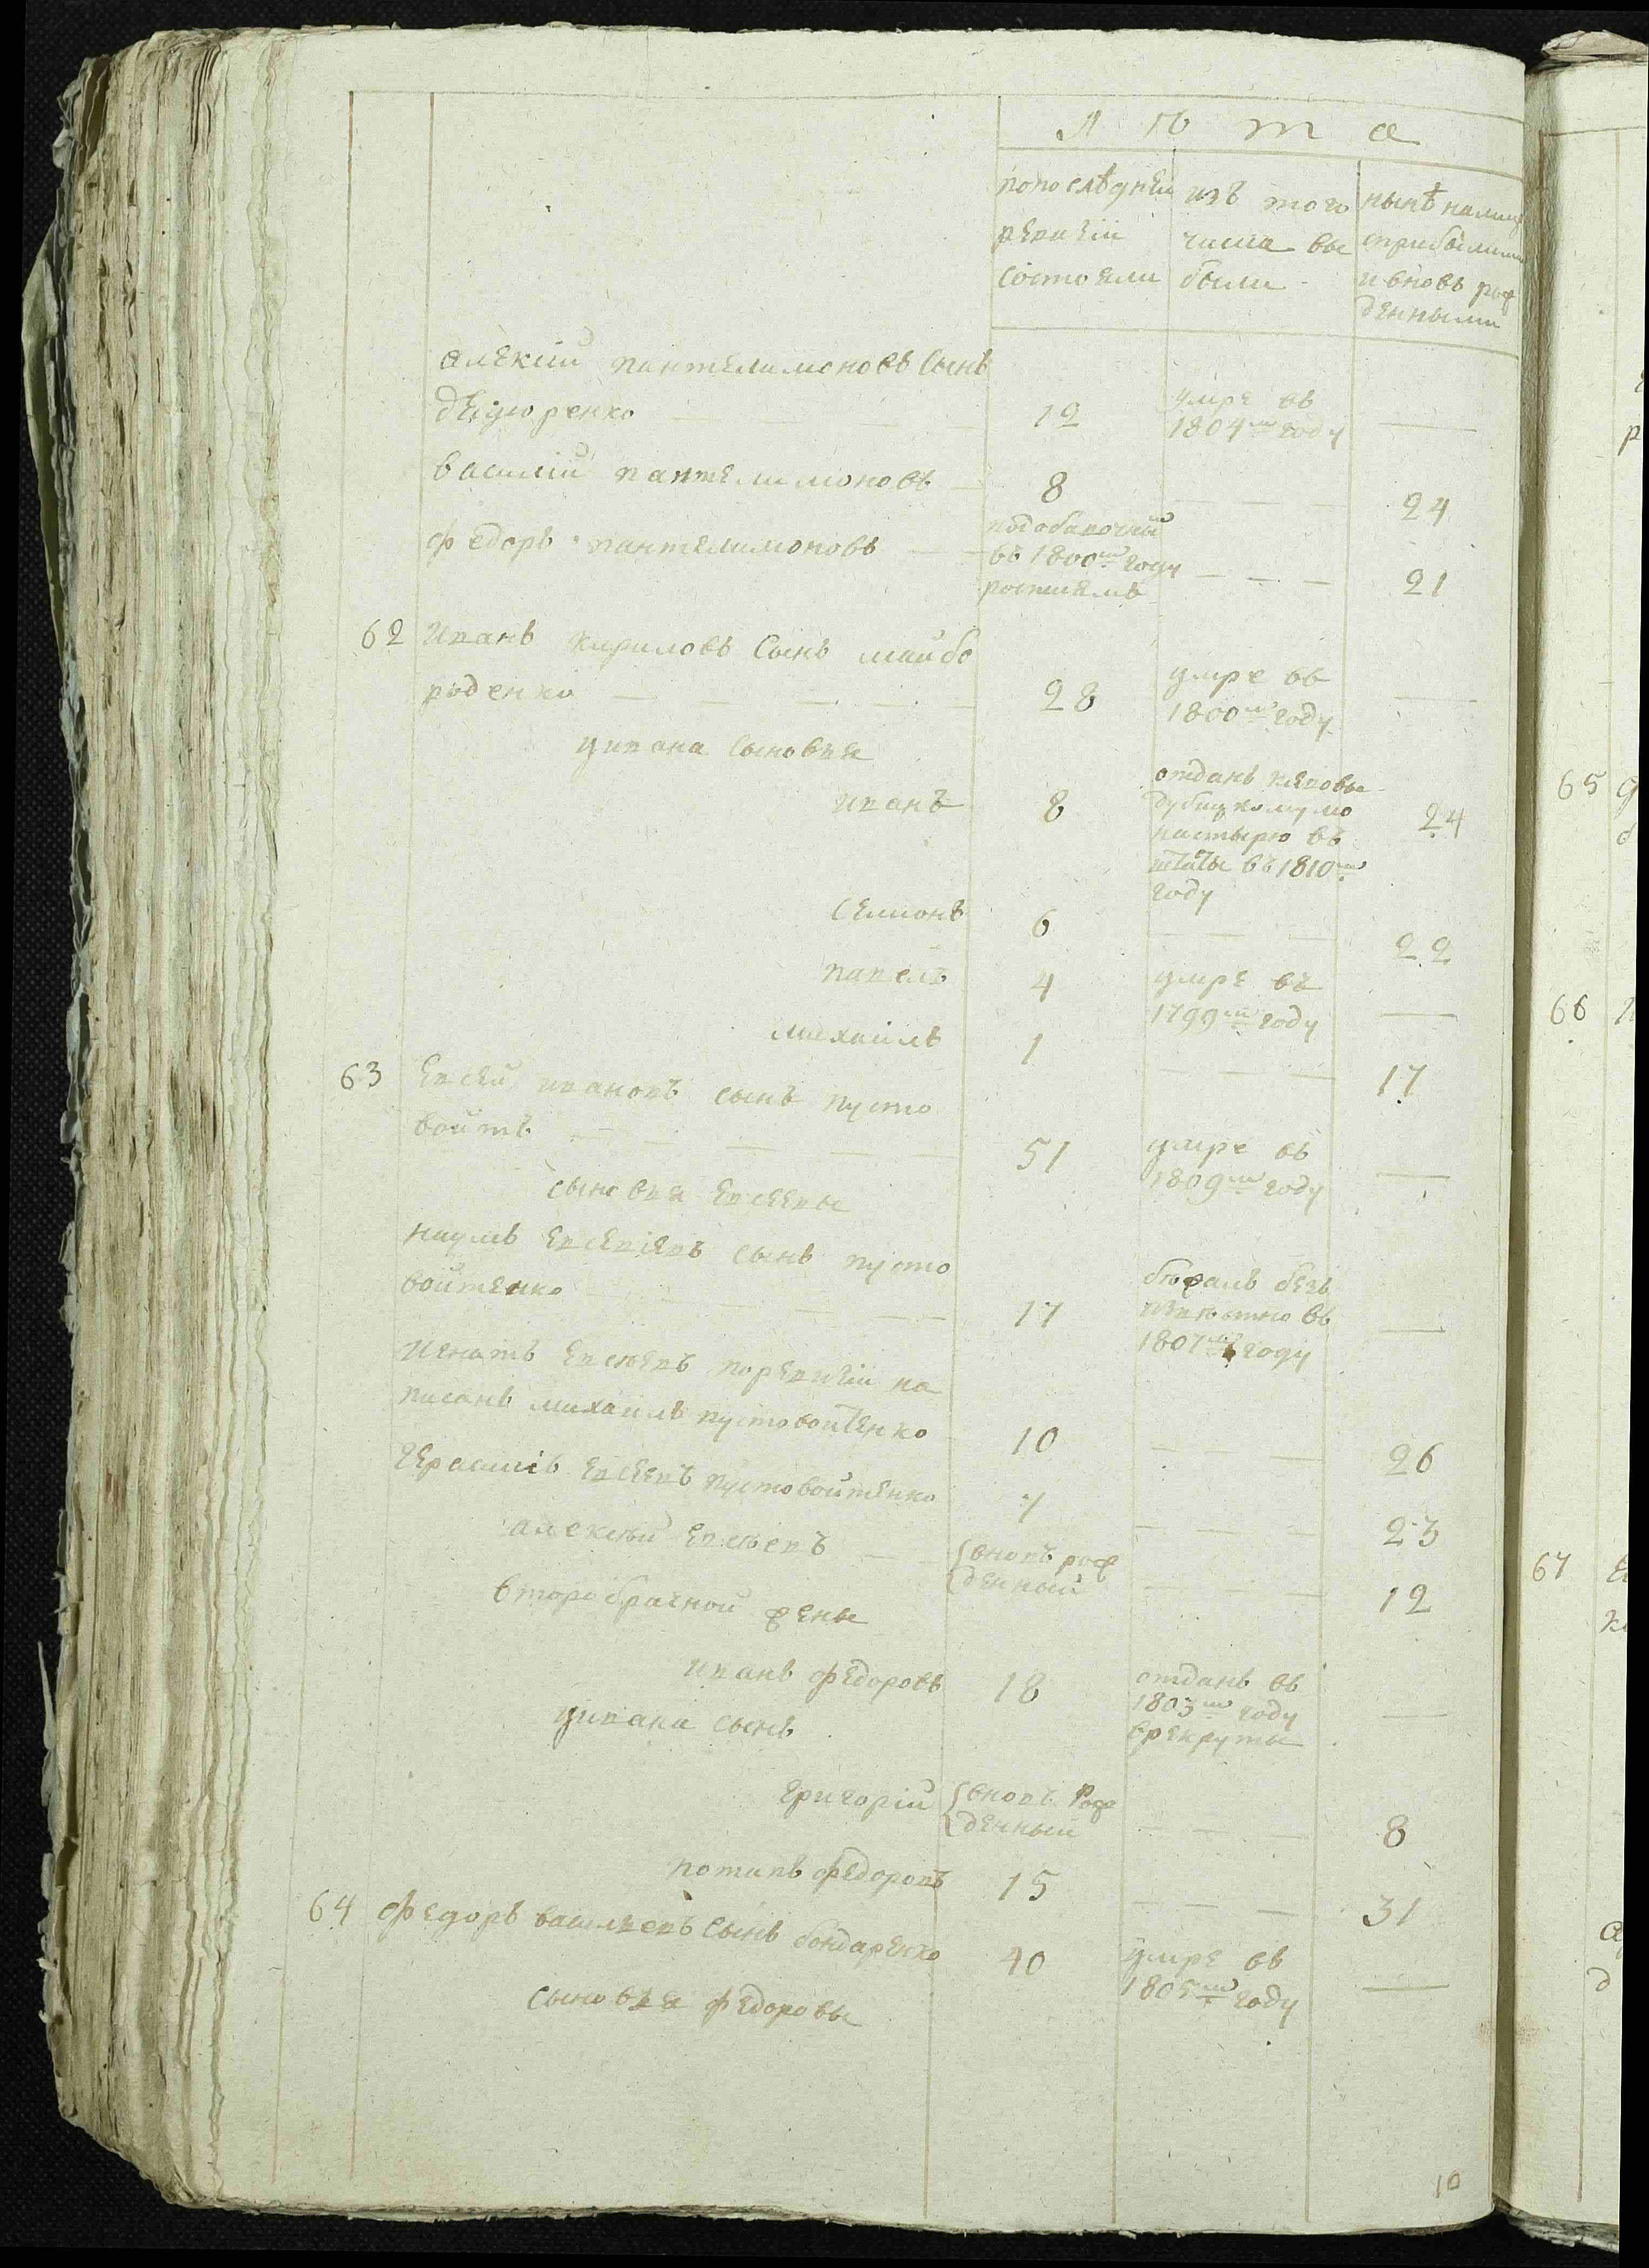 Л ѣ т а
попослѣдней
ревизіи
состояли
изъ того
числа вы
были
нынѣ налицо
сприбылими
ивновь рож
денными
алексій пантелимоновъ сынъ
12
умре въ
1804м году
василій пантелимоновъ
8
24
федоръ пантелимоновъ
въ 1800м году
21
62 Иванъ кириловъ сынъ майбо
роденко
28
умре въ
1800м году
уивана сыновья
иванъ
8
отданъ
дубицкому мо
настырю въ
штаты въ 1810м
году
24
семионъ
6
22
павелъ
4
умре въ
1799м году
михаилъ
1
17
63 Евсей ивановъ сынъ пусто
войтъ
51
умре въ
1809м году
сыновья Евсеевы
наумъ Евсевіевъ сынъ пусто
войтенко
17
бѣжалъ безъ
извѣстно въ
1807м году
Игнатъ Евсѣевъ поревизіи на
писанъ михаилъ пустовойтенко
10
26
герасимъ Евсеевъ пустовойтенко
7
23
алексѣй Евсѣевъ
вновъ рож
денный
12
второбрачной жены
иванъ федоровъ
18
отданъ въ
1803м году
врекруты
уивана сынъ
григорій
вновъ Рож
денный
8
потапъ федоровъ
15
31
64 федоръ васильевъ сынъ бондаренко
40
умре въ
1805м году
сыновья федоровы
10
65
66
67